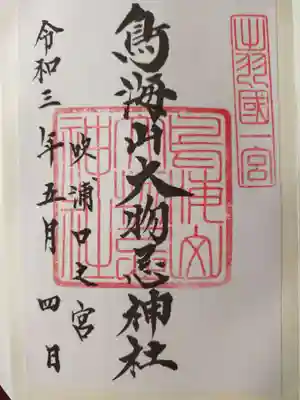 出羽國一宮
鳥海山大物忌神社
吹浦口之宮
令和三年五月四日